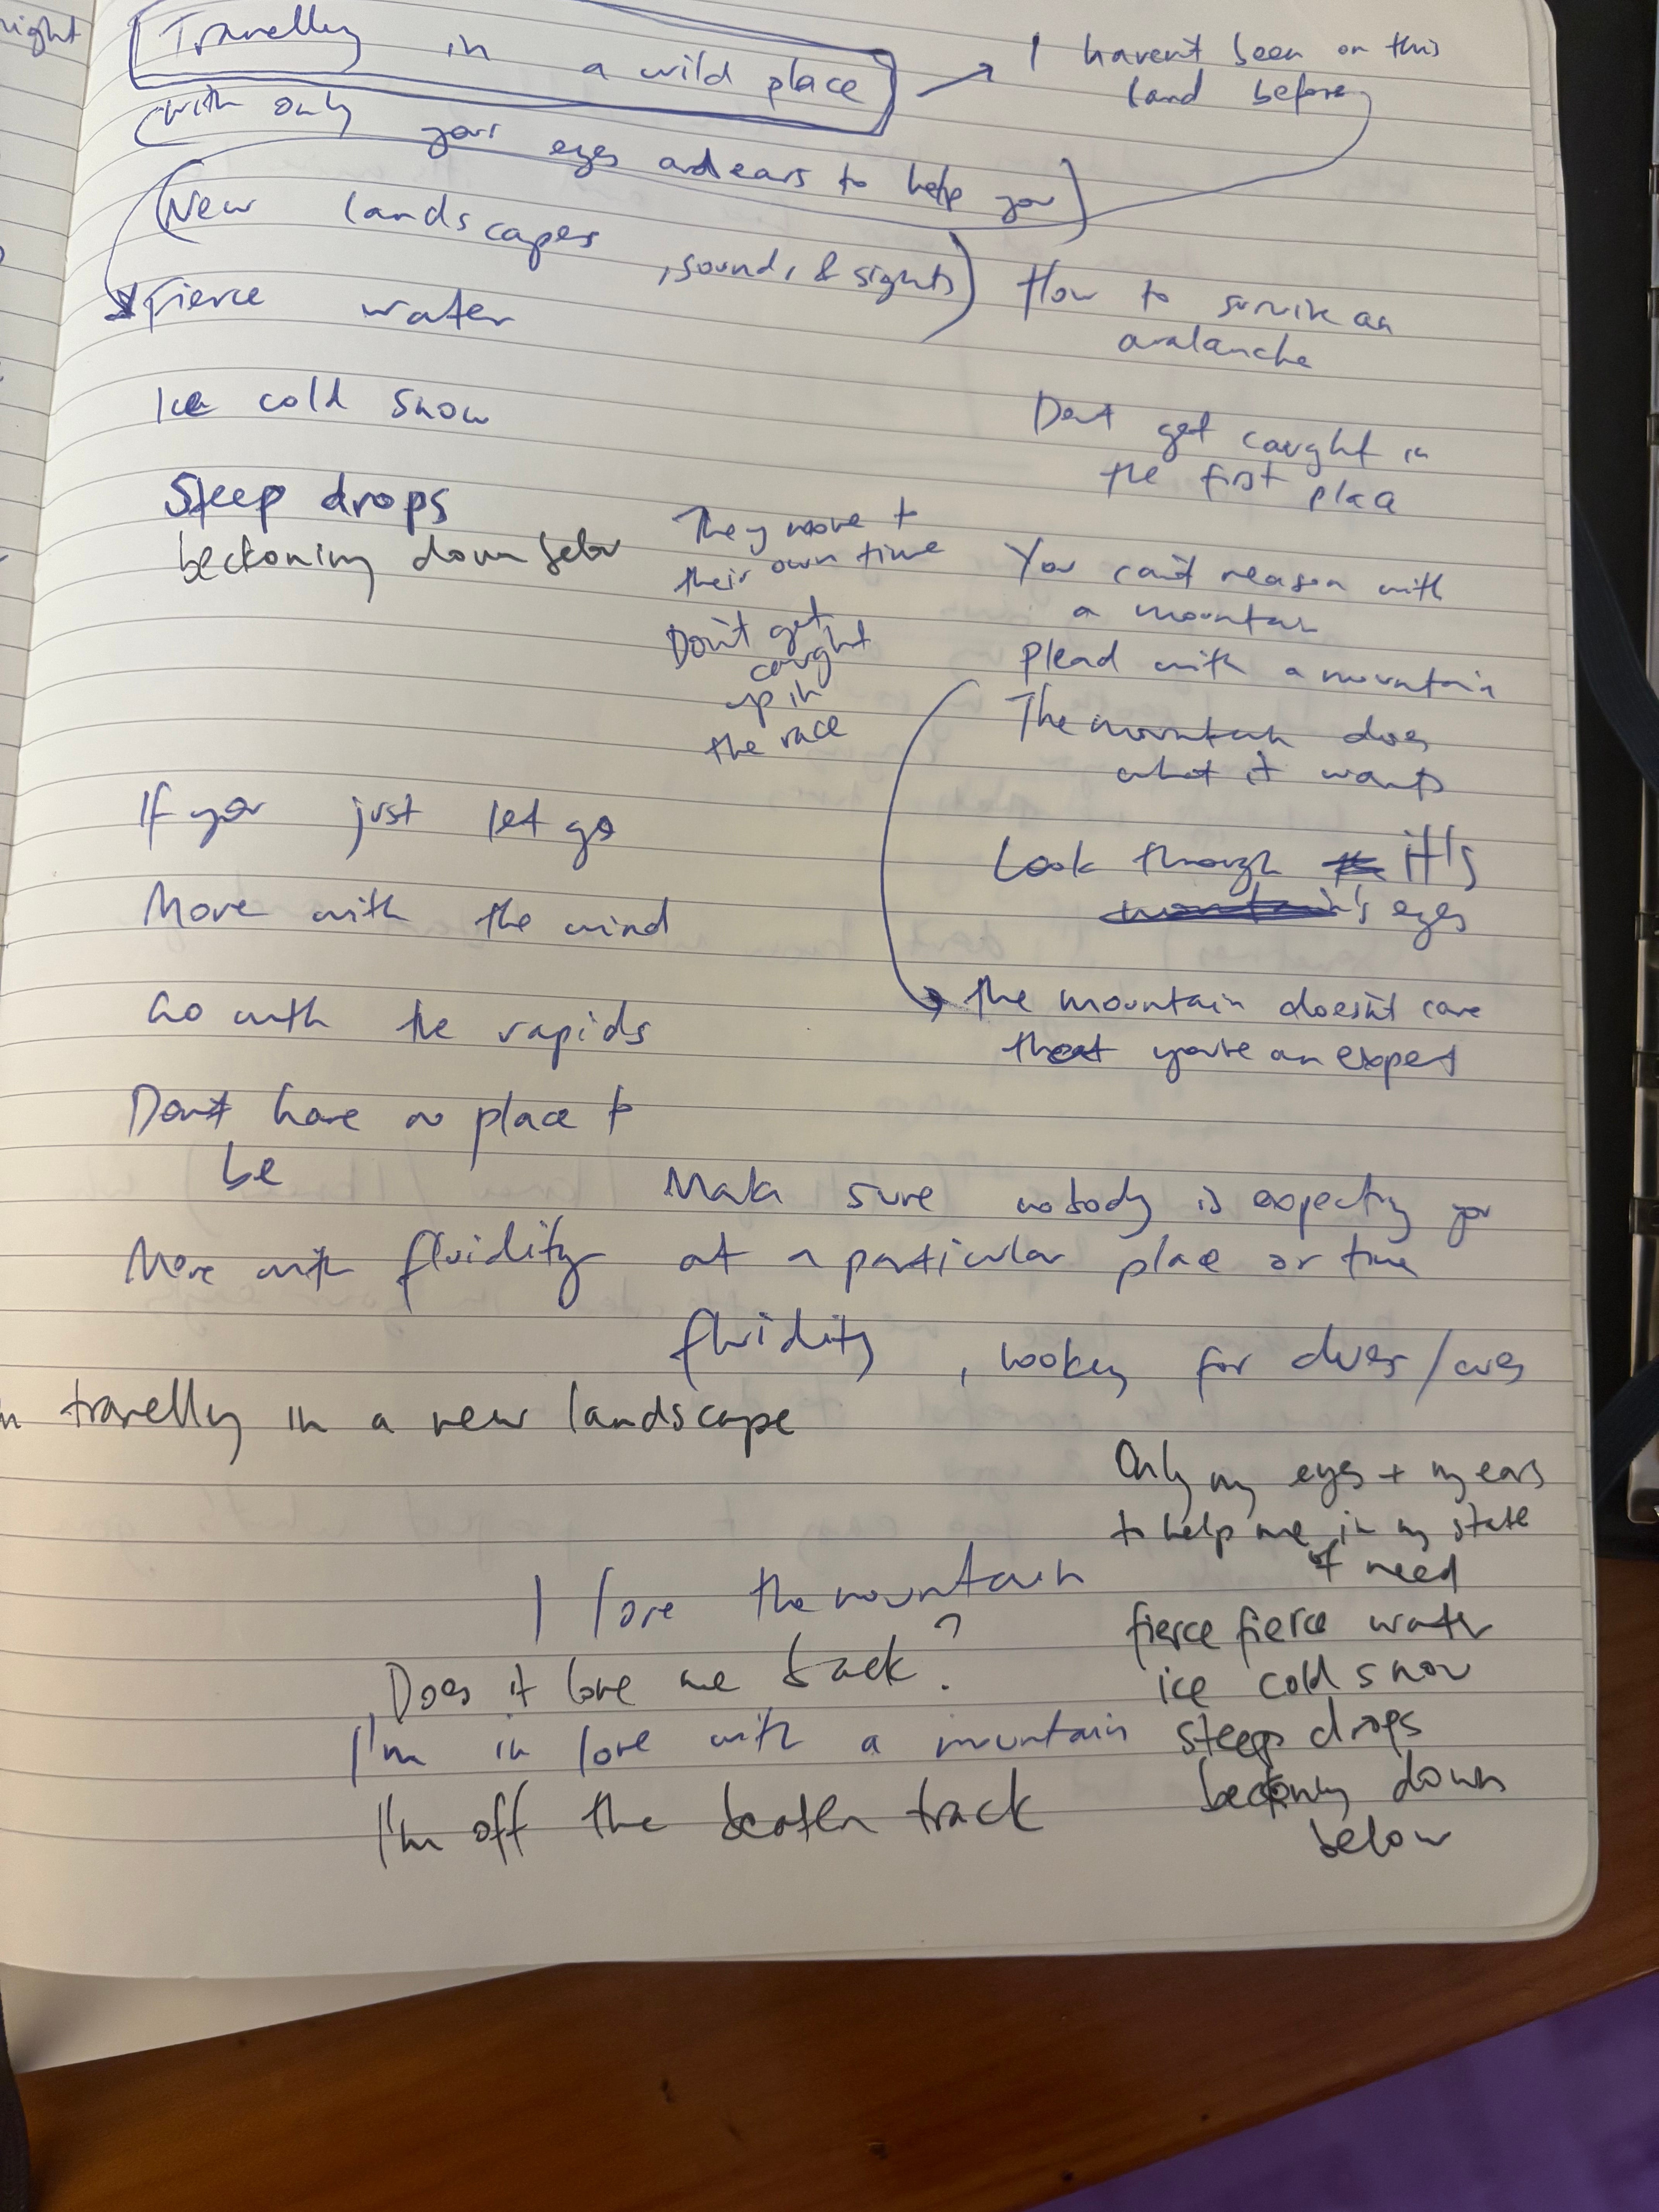 night
Travelling in a wild place
I haven't been on this
land before
(with only your eyes and ears to help you)
(New landscapes, sounds, & sights)
Fierce water
How to survive an
avalanche
Ice cold snow
Dont get caught in
the first place
Steep drops
beckoning down below
They move to
their own time
Don't get
caught
up in
the race
You can't reason with
a mountain
plead with a mountain
The mountain does
what it wants
If you just let go
Look through it's
eyes
Move with the wind
Go with the rapids
the mountain doesn't care
that you're an expert
Don't have a place to
be
Make sure nobody is expecting you
at a particular place or time
Move with fluidity
fluidity, looking for clues/cues
travelling in a new landscape
Only my eyes + my ears
to help me in my state
of need
I love the mountain
Does it love me back?
I'm in love with a mountain
I'm off the beaten track
fierce fierce water
ice cold snow
steep drops
beckoning down
below